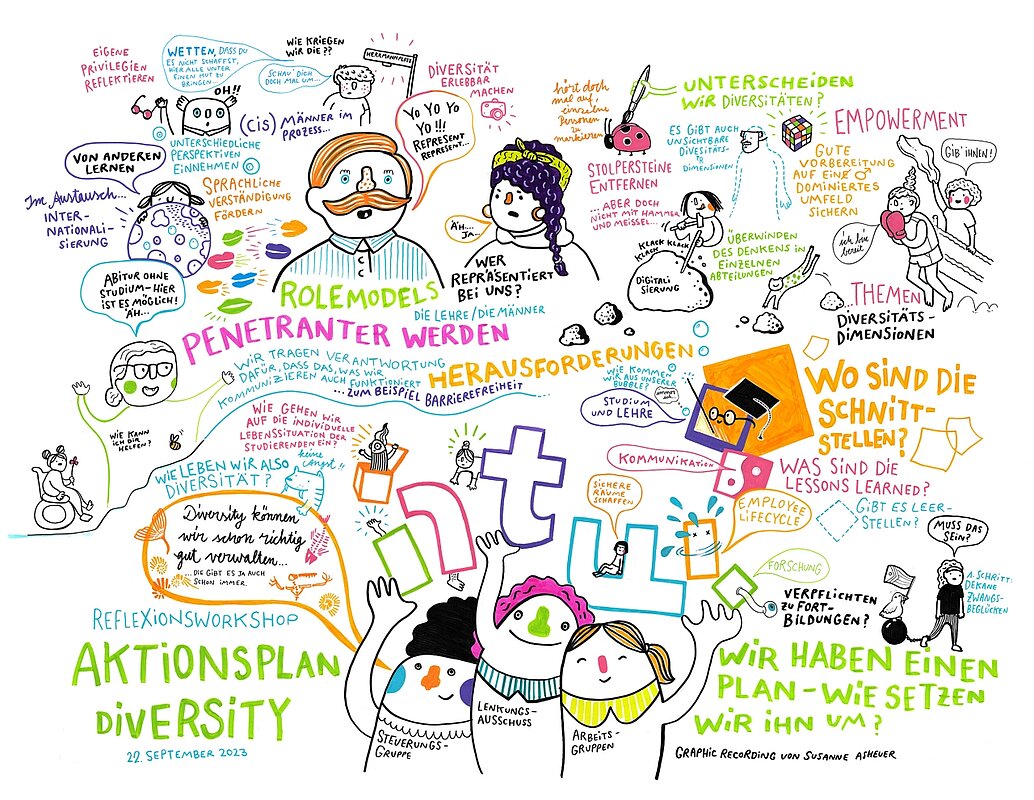 EIGENE
PRIVILEGIEN
REFLEKTIEREN
WETTEN, DASS DU
ES NICHT SCHAFFST,
HIER ALLE UNTER
EINEN HUT ZU
BRINGEN...
OH!!
WIE KRIEGEN
WIR DIE??
SCHAU' DICH
DOCH MAL UM...
HERRMANNPLATZ
(CIS) MÄNNER IM
PROZESS...
DIVERSITÄT
ERLEBBAR
MACHEN
YO YO YO
YO !!!
REPRESENT
REPRESENT...
UNTERSCHIEDLICHE
PERSPEKTIVEN
EINNEHMEN
VON ANDEREN
LERNEN
Im Austausch...
INTER-
NATIONALI-
SIERUNG
SPRACHLICHE
VERSTÄNDIGUNG
FÖRDERN
ÄH...
JA...
WER
REPRÄSENTIERT
BEI UNS?
DIE LEHRE/DIE MÄNNER
ROLEMODELS
PENETRANTER WERDEN
hört doch
mal auf,
einzelne
Personen
zu
markieren
UNTERSCHEIDEN
WIR DIVERSITÄTEN?
ES GIBT AUCH
UNSICHTBARE
DIVERSITÄTS-
DIMENSIONEN
STOLPERSTEINE
ENTFERNEN
... ABER DOCH
NICHT MIT HAMMER
UND MEISSEL...
KLACK KLACK
KLACK
DIGITALI
SIERUNG
ÜBERWINDEN
DES DENKENS IN
EINZELNEN
ABTEILUNGEN
EMPOWERMENT
GUTE
VORBEREITUNG
AUF EIN ♂
DOMINIERTES
UMFELD
SICHERN
GIB' IHNEN!
ich bin
bereit
...THEMEN
DIVERSITÄTS-
DIMENSIONEN
ABITUR OHNE
STUDIUM-HIER
IST ES MÖGLICH!
ÄH...
WIE KANN
ICH DIR
HELFEN?
WIR TRAGEN VERANTWORTUNG
DAFÜR, DASS DAS, WAS WIR
KOMMUNIZIEREN AUCH FUNKTIONIERT
... ZUM BEISPIEL BARRIEREFREIHEIT
HERAUSFORDERUNGEN
WIE KOMMEN
WIR AUS UNSERER
BUBBLE?
STUDIUM
UND LEHRE
WO SIND DIE
SCHNITT-
STELLEN?
WIE GEHEN WIR
AUF DIE INDIVIDUELLE
LEBENSSITUATION DER
STUDIERENDEN EIN?
keine
Angst!!
WIE LEBEN WIR ALSO
DIVERSITÄT?
KOMMUNIKATION
WAS SIND DIE
LESSONS LEARNED?
SICHERE
RÄUME
SCHAFFEN
EMPLOYEE
LIFECYCLE
GIBT ES LEER-
STELLEN?
Diversity können
wir schon richtig
gut verwalten...
...DIE GIBT ES JA AUCH
SCHON IMMER.
ntu
FORSCHUNG
VERPFLICHTEN
ZU FORT-
BILDUNGEN?
MUSS DAS
SEIN?
1. SCHRITT:
DEKANE
ZWANGS-
BEGLÜCKEN
REFLEXIONSWORKSHOP
AKTIONSPLAN
DIVERSITY
22. SEPTEMBER 2023
STEUERUNGS-
GRUPPE
LENKUNGS-
AUSSCHUSS
ARBEITS-
GRUPPEN
WIR HABEN EINEN
PLAN - WIE SETZEN
WIR IHN UM?
GRAPHIC RECORDING VON SUSANNE ASHEUER